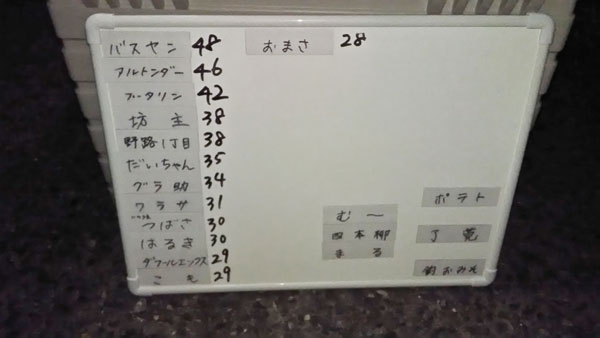 バスヤン 48
アルトンダー 46
ブータリン 42
坊主 38
野路1丁目 38
だいちゃん 35
グラ助 34
ワラサ 31
つばさ 30
はるき 30
ダブールエックス 29
29
おまさ 28
む〜
四本柳
まる
ポテト